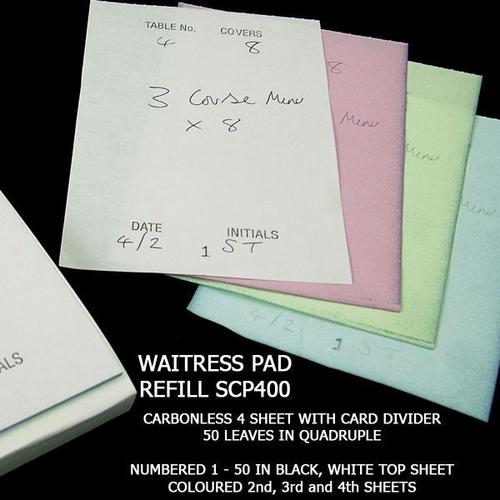 TABLE No. COVERS
4 8
3 Course Menu
x 8
DATE INITIALS
4/2 1 ST
8
Menu
Menu
Menu
4/2 1 ST
ALS
WAITRESS PAD
REFILL SCP400
CARBONLESS 4 SHEET WITH CARD DIVIDER
50 LEAVES IN QUADRUPLE
NUMBERED 1 - 50 IN BLACK, WHITE TOP SHEET
COLOURED 2nd, 3rd and 4th SHEETS